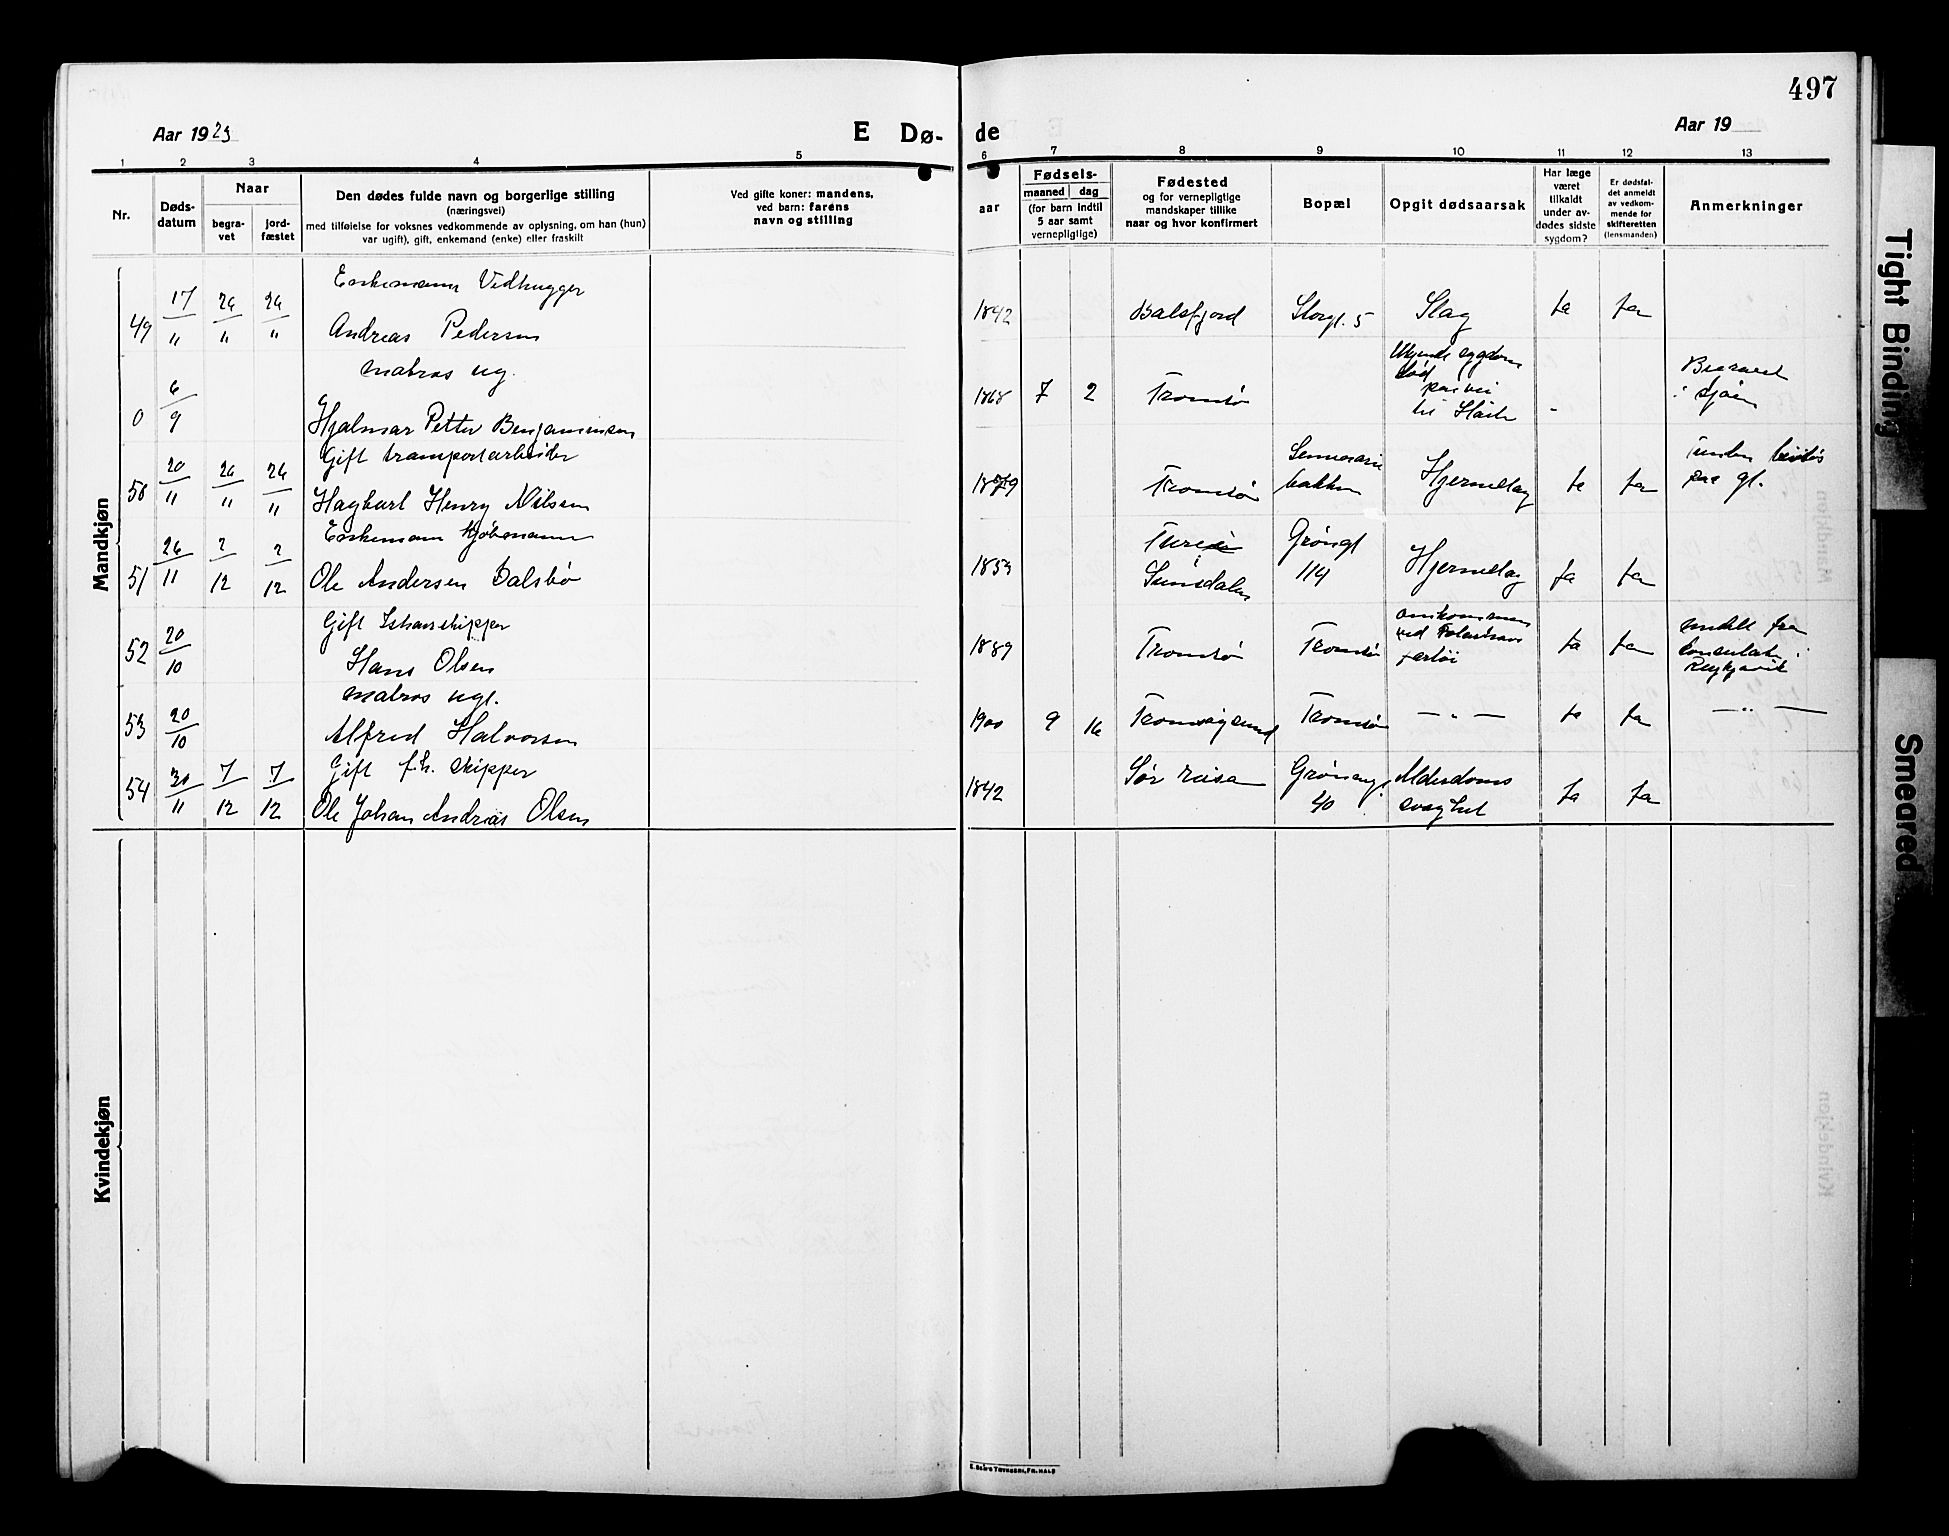 497
Aar 1923
E Dø-
de
Aar 19
1 2 3 4 5 6 7 8 9 10 11 12 13
Nr.
Døds-
datum
Naar
begra-
vet
jord-
fæstet
Den dødes fulde navn og borgerlige stilling
(næringsvei)
med tilføielse for voksnes vedkommende av oplysning, om han (hun)
var ugift), gift, enkemand (enke) eller fraskilt
Ved gifte koner: mandens,
ved barn: farens
navn og stilling
aar
Fødsels-
maaned dag
(for barn indtil
5 aar samt
vernepligtige)
Fødested
og for vernepligtige
mandskaper tillike
naar og hvor konfirmert
Bopæl
Opgit dødsaarsak
Har læge
været
tilkaldt
under av-
dødes sidste
sygdom?
Er dødsfal-
det anmeldt
av vedkom-
mende for
skifteretten
(lensmanden)
Anmerkninger
Mandkjøn
49 17/11 24/11 24/11 Enkemann Vedhugger
Andreas Pedersen
1842 Balsfjord Storgt. 5 Slag Ja Ja
0 6/9 matros ug.
Hjalmar Petter Benjaminsen
1868 7 2 Tromsø Ukjendt sygdom
død paa vei
til
-
i sjøen
50 20/11 24/11 24/11 Gift transportarbeider
Hagbart Henry Nilsen
1879 Tromsø
bakken Hjerneslag Ja Ja
paa gl.
51 26/11 2/12 2/12 Enkemann Kjøbmann
Ole Andersen Dalsbø
1853
Sunsdalen Grøngt
114 Hjerneslag Ja Ja
52 20/10 Gift Ishavskipper
Hans Olsen
1889 Tromsø Tromsø omkommen
ved
fartøi Ja Ja meldt fra
konsulatet i
Reykjavik
53 20/10 matros ugt.
Alfred Halvorsen
1900 9 16 Tromsøysund Tromsø — " — Ja Ja — " —
54 30/11 7/12 7/12 Gift f.h. skipper
Ole Johan Andreas Olsen
1842 Sør reisa Grønneg.
40 Alderdoms
svaghet Ja Ja
Kvindekjøn
E. SEM'S TRYKKERI, FR.HALD
Tight Binding
Smeared